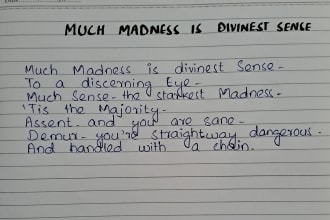 MUCH MADNESS IS DIVINEST SENSE
Much Madness is divinest Sense-
To a discerning Eye-
Much Sense- the starkest Madness-
'Tis the Majority-
Assent- and you are sane-
Demur- you're straightway dangerous-
And handled with a chain.